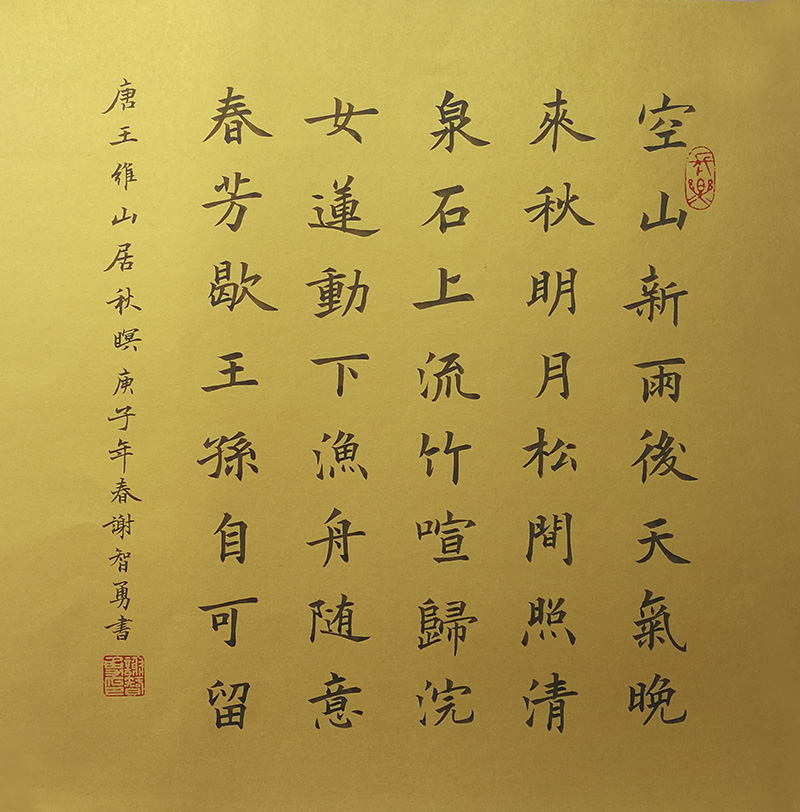 空山新雨後天氣晚
來秋明月松間照清
泉石上流竹喧歸浣
女蓮動下漁舟随意
春芳歇王孫自可留
唐王維山居秋暝庚子年春謝智勇書
謝智勇印